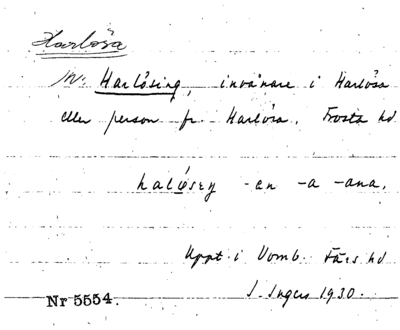 Harlösa
m. Harlösing, invånare i Harlösa
eller person fr. Harlösa. Frosta hd
haløseŋ -en -a -ana.
Uppt. i Vomb. Färs hd
I. Ingers 1930.
Nr 5554.